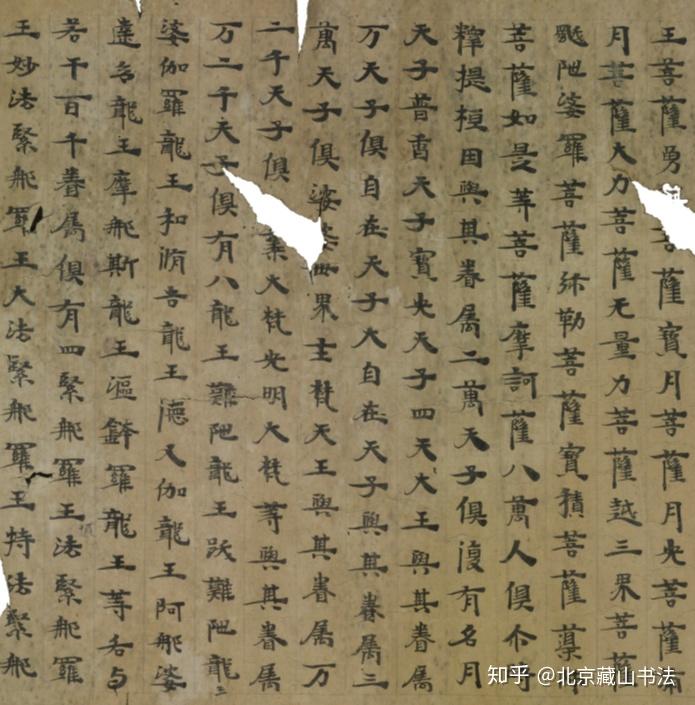 王菩薩勇菩薩寶月菩薩月光菩薩
月菩薩大力菩薩无量力菩薩越三界菩薩
颰陁婆羅菩薩弥勒菩薩寶積菩薩導
菩薩如是等菩薩摩訶薩八萬人俱尒時
釋提桓因與其眷属二萬天子俱復有名月
天子普香天子寶光天子四天大王與其眷属
万天子俱自在天子大自在天子與其眷属三
萬天子俱娑婆世界主梵天王與其眷属万
二千天子俱棄大梵光明大梵等與其眷属
万二千天子俱有八龍王難陁龍王跋難陁龍王
娑伽羅龍王和脩吉龍王德叉伽龍王阿那婆
達多龍王摩那斯龍王漚鉢羅龍王等各与
若干百千眷属俱有四緊那羅王法緊那羅
王妙法緊那羅王大法緊那羅王持法緊那
知乎 @北京藏山书法